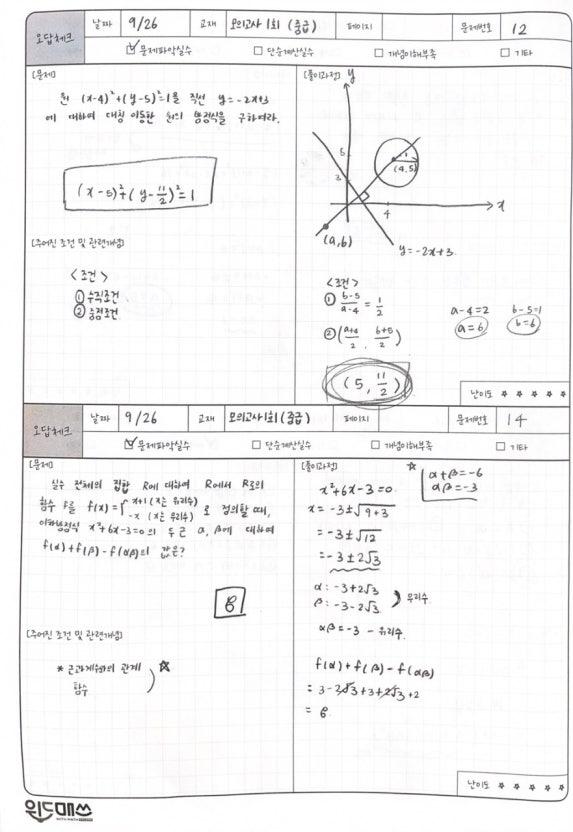 오답체크
날짜 9/26 교재 모의고사 1회 (중급) 페이지 문제번호 12
☑ 문제파악실수 ☐ 단순계산실수 ☐ 개념이해부족 ☐ 기타
[문제]
원 (x-4)²+(y-5)²=1을 직선 y=-2x+3
에 대하여 대칭이동한 원의 방정식을 구하여라.
(x-5)²+(y-11/2)²=1
[주어진 조건 및 관련개념]
<조건>
① 수직조건
② 중점조건
[풀이과정]
y
5
3
1
(4,5)
4
x
(a,b)
y=-2x+3
<조건>
① (b-5)/(a-4) = 1/2
a-4=2 b-5=1
a=6 b=6
② ((a+4)/2, (b+5)/2)
(5, 11/2)
난이도 ★ ★ ★ ★ ★
오답체크
날짜 9/26 교재 모의고사 1회 (중급) 페이지 문제번호 14
☑ 문제파악실수 ☐ 단순계산실수 ☐ 개념이해부족 ☐ 기타
[문제]
실수 전체의 집합 R에 대하여 R에서 R로의
함수 f를 f(x)={x+1 (x는 유리수)
-x (x는 무리수) 로 정의할 때,
이차방정식 x²+6x-3=0의 두 근 α, β에 대하여
f(α)+f(β)-f(αβ)의 값은?
8
[주어진 조건 및 관련개념]
* 근과계수와의 관계
함수
☆
[풀이과정]
☆ α+β=-6
αβ=-3
x²+6x-3=0
x=-3±√9+3
=-3±√12
=-3±2√3
α: -3+2√3
β: -3-2√3
무리수
αβ=-3 - 유리수
f(α)+f(β)-f(αβ)
=3-2√3+3+2√3+2
=8
난이도 ★ ★ ★ ★ ★
위드매쓰